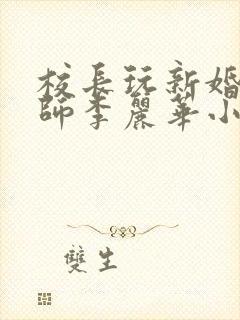 校長玩新婚
師李麗華小
雙生